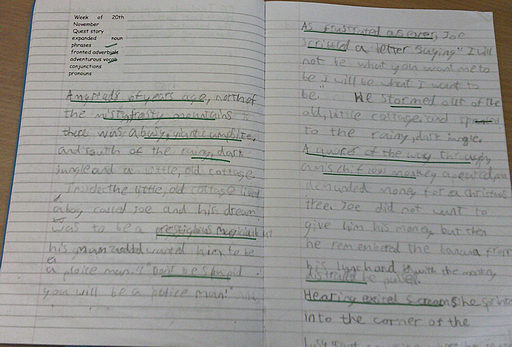 Week of 20th
November
Quest story
expanded noun
phrases
fronted adverbials
adventurous vocab
conjunctions
pronouns
of years ago, north of
the misty frosty mountains
there was a
and south of the rainy, dark
jungle and a little, old cottage.
Inside the little, old cottage lived
a boy called Joe and his dream
was to be a prestigious
his mum wanted him to be
a police man! "Don't be stupid
you will be a police man!"
As frustrated as ever, Joe
a letter saying "I will
not be what you want me to
be I will be what I want to
be. He stormed out of the
old, little cottage and
to the rainy, dark jungle.
A quarter of the way through,
a mischievous monkey appeared and
demanded money for a christmas
tree. Joe did not want to
give him his money but then
he remembered the banana from
his lunch and the monkey
Hearing screams he
into the corner of the